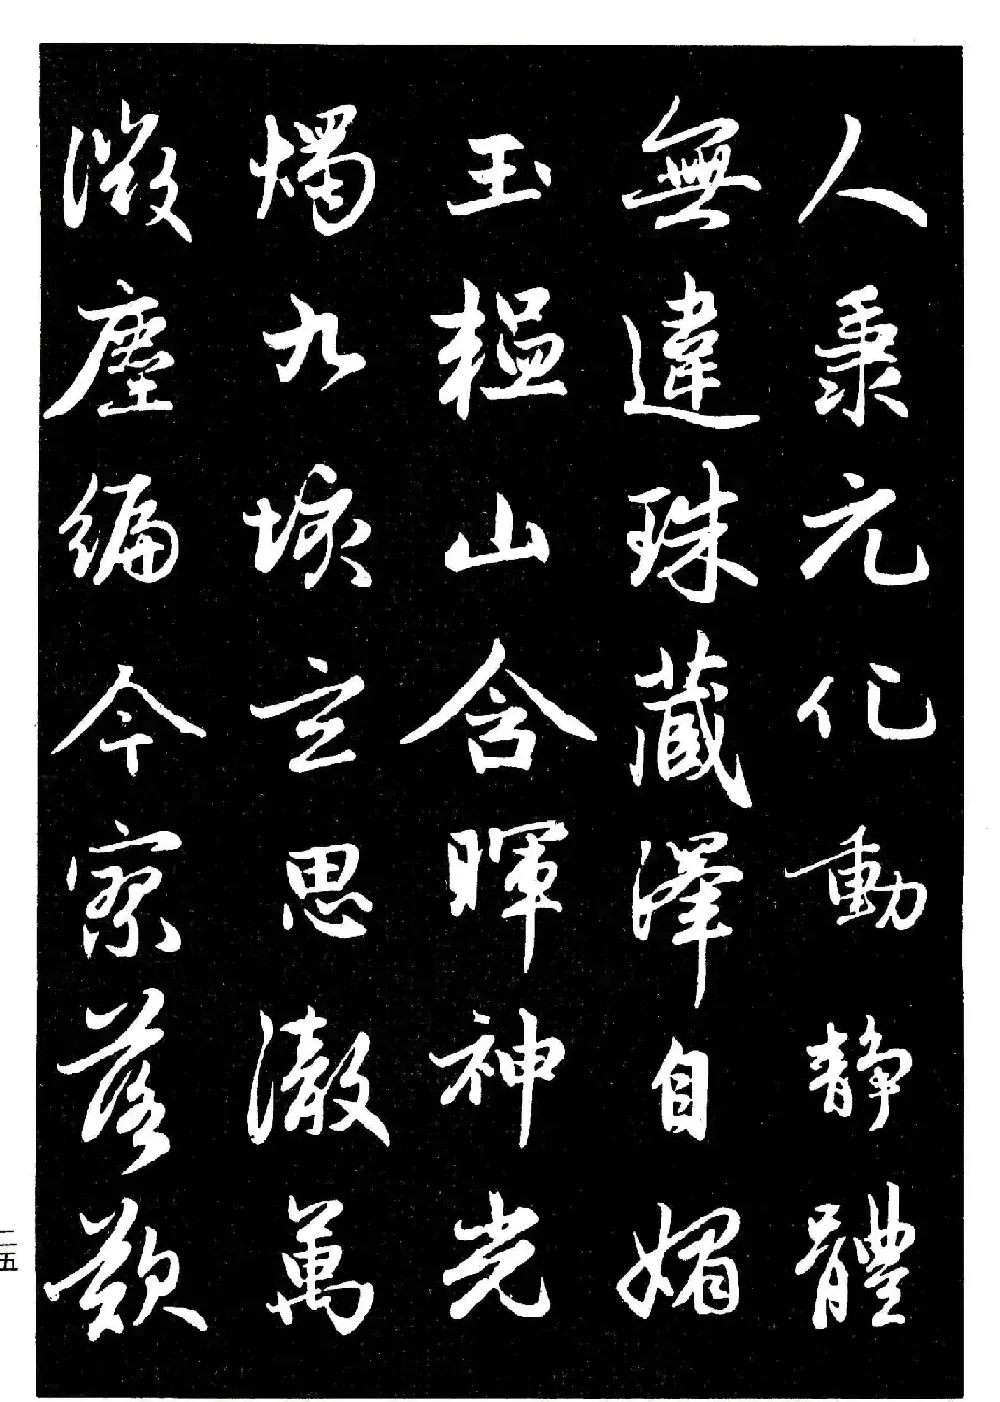 人秉元化動靜體
無違珠藏澤自媚
玉韞山含暉神光
燭九垓玄思徹萬
微塵編今寥落歎
二五